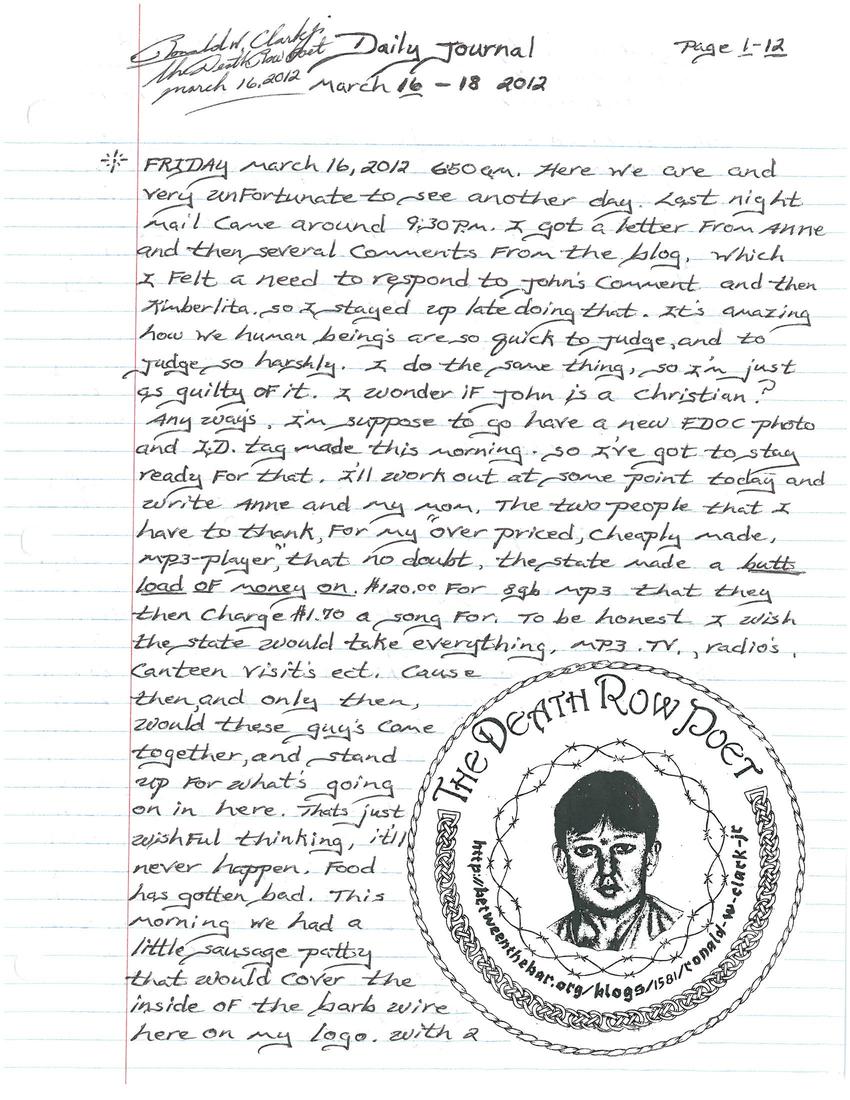 Ronald W. Clark jr
the Death Row Poet
march 16, 2012
Daily Journal
March 16 - 18 2012
Page 1-12
FRIDAY march 16, 2012 6:50am. Here we are and
very unFortunate to see another day. Last night
mail came around 9:30pm. I got a letter From Anne
and then several Comments From the blog, which
I Felt a need to respond to John's Comment and then
Kimberlita. so I stayed up late doing that. It's amazing
how we human being's are so quick to judge, and to
judge so harshly. I do the same thing, so I'm just
as guilty of it. I wonder if John is a christian?
Any ways, I'm suppose to go have a new FDOC photo
and I.D. tag made this morning. so I've got to stay
ready For that. I'll work out at some point today and
write Anne and my mom. The two people that I
have to thank, For my "over priced, cheaply made,
mp3-player," that no doubt, the state made a butts
load of money on. $120.00 For 8gb mp3 that they
then Charge $1.70 a song For. To be honest I wish
the state would take everything, MP3. TV., radio's,
Canteen visit's ect. Cause
then, and only then,
would these guy's come
together, and stand
up For what's going
on in here. Thats just
wishful thinking, it'll
never happen. Food
has gotten bad. This
morning we had a
little sausage pattsy
that would cover the
inside of the barb wire
here on my logo. with 2
THE DEATH ROW POET
http://betweenthebar.org/blogs/1581/ronald-w-clark-jr